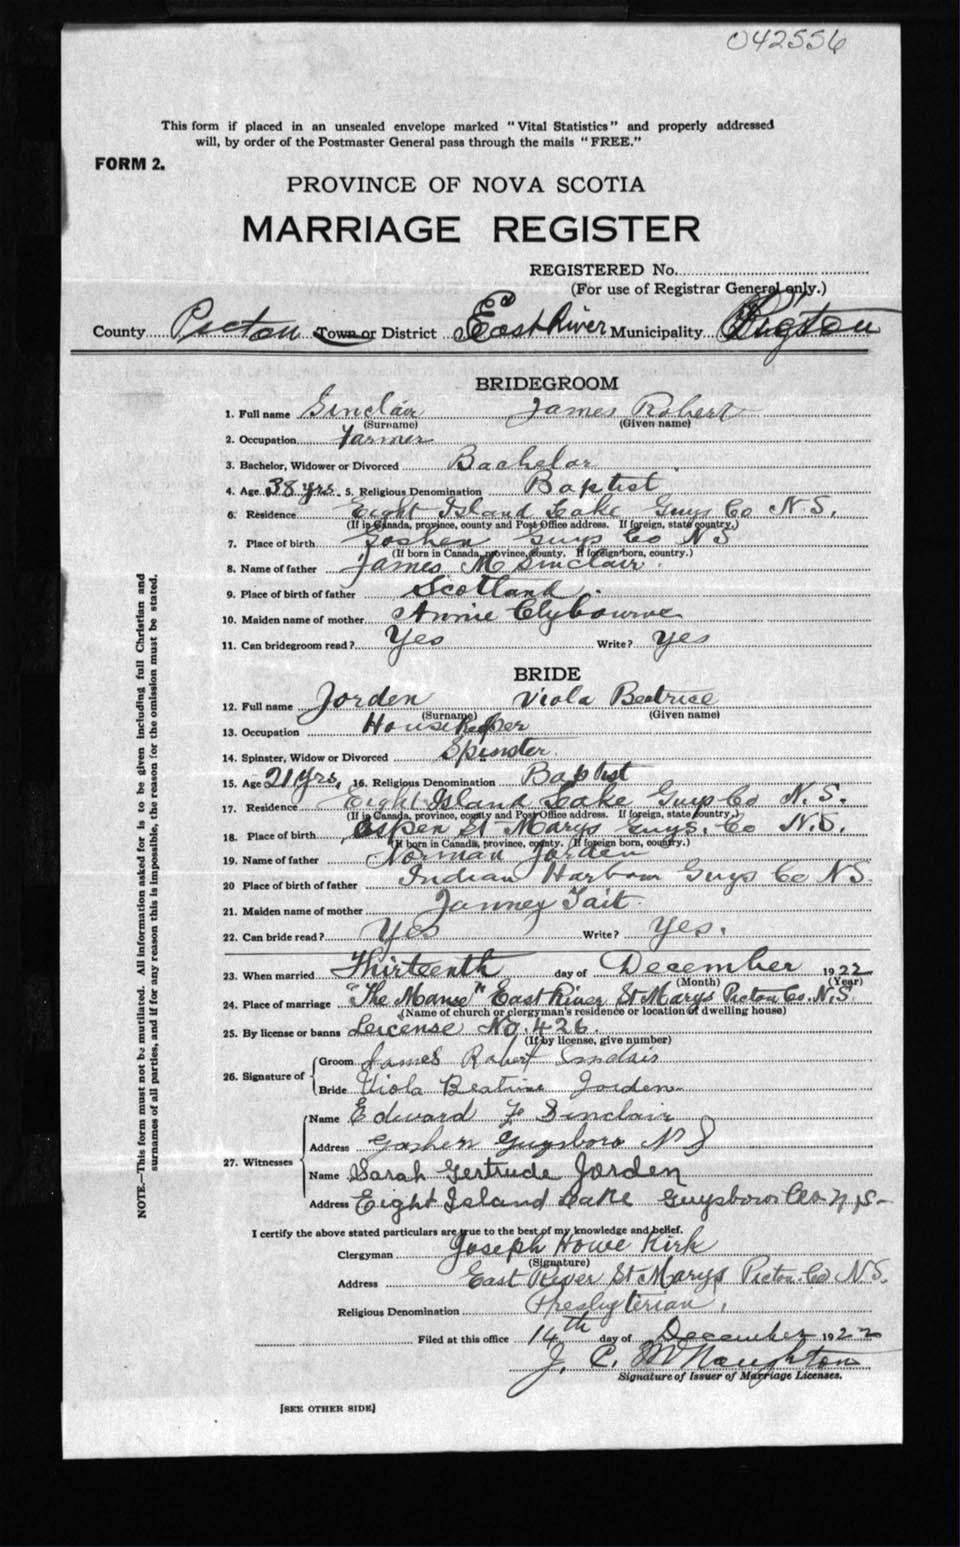 042556
This form if placed in an unsealed envelope marked "Vital Statistics" and properly addressed
will, by order of the Postmaster General pass through the mails "FREE."
FORM 2.
PROVINCE OF NOVA SCOTIA
MARRIAGE REGISTER
REGISTERED No.
(For use of Registrar General only.)
County Pictou Town or District East River Municipality Pictou
BRIDEGROOM
1. Full name Sinclair James Robert
(Surname) (Given name)
2. Occupation Farmer
3. Bachelor, Widower or Divorced Bachelor
4. Age 38 yrs. 5. Religious Denomination Baptist
6. Residence Eight Island Lake Guys Co N.S.
(If in Canada, province, county and Post Office address. If foreign, state country.)
7. Place of birth Goshen Guys Co NS
(If born in Canada, province, county. If foreign born, country.)
8. Name of father James M Sinclair
9. Place of birth of father Scotland
10. Maiden name of mother Annie Clybourne
11. Can bridegroom read? Yes Write? Yes
BRIDE
12. Full name Jorden Viola Beatrice
(Surname) (Given name)
13. Occupation Housekeeper
14. Spinster, Widow or Divorced Spinster
15. Age 21 yrs. 16. Religious Denomination Baptist
17. Residence Eight Island Lake Guys Co N.S.
(If in Canada, province, county and Post Office address. If foreign, state country.)
18. Place of birth Aspen St Marys Guys. Co N.S.
(If born in Canada, province, county. If foreign born, country.)
19. Name of father Norman Jorden
20 Place of birth of father Indian Harbour Guys Co NS.
21. Maiden name of mother Janney Tait
22. Can bride read? Yes Write? Yes.
23. When married Thirteenth day of December 1922
(Month) (Year)
24. Place of marriage "The Manse" East River St Marys Pictou Co. N.S.
(Name of church or clergyman's residence or location of dwelling house)
25. By license or banns License No. 426.
(If by license, give number)
26. Signature of
Groom James Robert Sinclair
Bride Viola Beatrice Jorden
27. Witnesses
Name Edward F Sinclair
Address Goshen Guysboro N S
Name Sarah Gertrude Jorden
Address Eight Island Lake Guysboro Co N.S.
I certify the above stated particulars are true to the best of my knowledge and belief.
Clergyman Joseph Howe Kirk
(Signature)
Address East River St Marys Pictou Co N.S.
Religious Denomination Presbyterian.
Filed at this office 14th day of December 1922
J. C. McNaughton
Signature of Issuer of Marriage Licenses.
[SEE OTHER SIDE]
NOTE.—This form must not be mutilated. All information asked for is to be given including full Christian and
surnames of all parties, and if for any reason this is impossible, the reason for the omission must be stated.